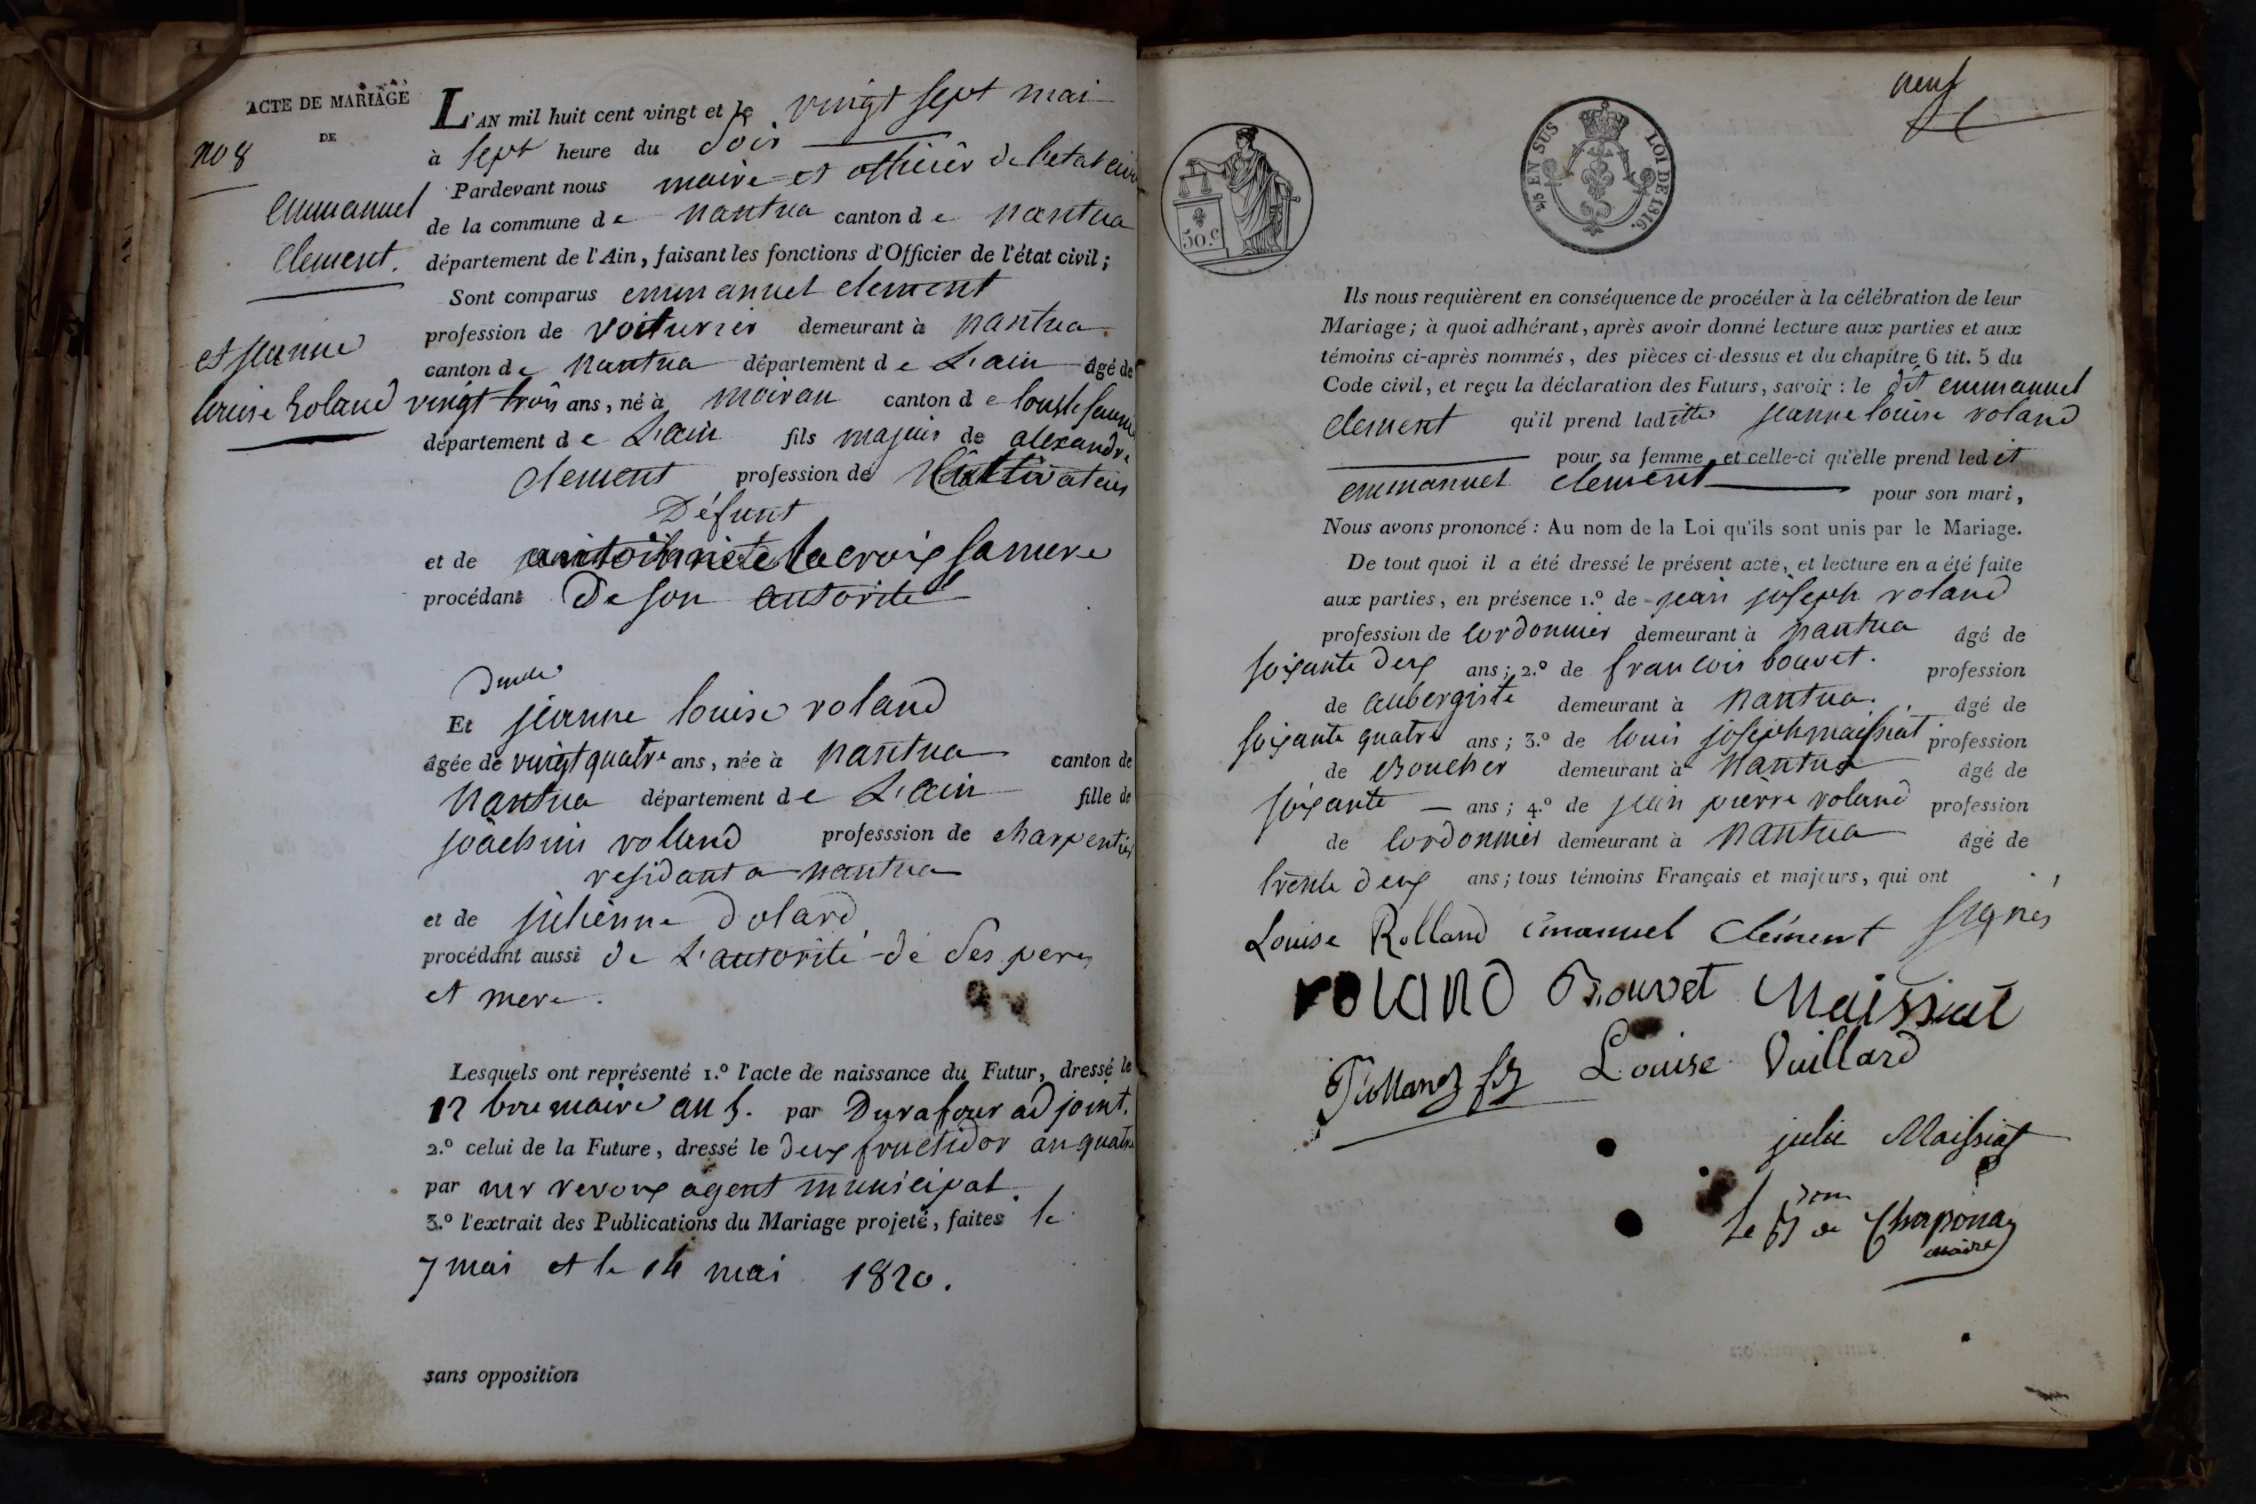 ACTE DE MARIAGE
DE
no 8
emmanuel
clement.
et jeanne
louise Roland
L'AN mil huit cent vingt et le vingt sept mai
à sept heure du soir
Pardevant nous maire et officier de l'etat civil
de la commune de nantua canton de nantua
département de l'Ain, faisant les fonctions d'Officier de l'état civil;
Sont comparus emmanuel clement
profession de voiturier demeurant à nantua
canton de nantua département de L'ain âgé de
vingt trois ans, né à moiran canton de
département de L'ain fils majeur de alexandre
clement profession de Cultivateur
Défunt
et de lacroix sa mere
procédant de son autorité
Et jeanne louise roland
âgée de vingt quatre ans, née à nantua canton de
nantua département de L'ain fille de
joachim rolland professsion de charpentier
residant a nantua
et de julienne dolard
procédant aussi de L'autorité de ses peres
et mere.
Lesquels ont représenté 1.º l'acte de naissance du Futur, dressé le
12 brumaire an 5. par Durafour adjoint.
2.º celui de la Future, dressé le deux fructidor an quatre
par mr agent municipal.
3.º l'extrait des Publications du Mariage projeté, faites le
7 mai et le 14 mai 1820.
sans opposition
neuf
50.c
25 EN SUS
LOI DE 1816.
Ils nous requièrent en conséquence de procéder à la célébration de leur
Mariage; à quoi adhérant, après avoir donné lecture aux parties et aux
témoins ci-après nommés, des pièces ci-dessus et du chapitre 6 tit. 5 du
Code civil, et reçu la déclaration des Futurs, savoir : le dit emmanuel
clement qu'il prend laditte jeanne louise roland
pour sa femme et celle-ci qu'elle prend ledit
emmanuel clement pour son mari,
Nous avons prononcé : Au nom de la Loi qu'ils sont unis par le Mariage.
De tout quoi il a été dressé le présent acte, et lecture en a été faite
aux parties, en présence 1.º de jean joseph roland
profession de cordonnier demeurant à nantua âgé de
soixante deux ans; 2.º de francois bouvet. profession
de aubergiste demeurant à nantua. âgé de
soixante quatre ans; 3.º de louis joseph maissiat profession
de Boucher demeurant à nantua âgé de
soixante ans; 4.º de jean pierre roland profession
de cordonnier demeurant à nantua âgé de
trente deux ans; tous témoins Français et majeurs, qui ont
signés
Louise Rolland Emanuel Clément
roland Bouvet Maissiat
Rolland fils Louise Vuillard
julie Maissiat
Le de Chaponay
maire